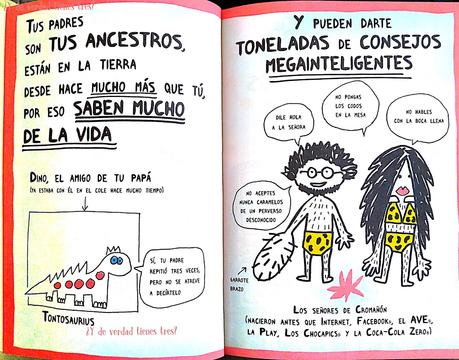 ¿Y de verdad tienes tres?
TUS PADRES
SON TUS ANCESTROS,
ESTÁN EN LA TIERRA
DESDE HACE MUCHO MÁS QUE TÚ,
POR ESO SABEN MUCHO
DE LA VIDA
DINO, EL AMIGO DE TU PAPÁ
(YA ESTABA CON ÉL EN EL COLE HACE MUCHO TIEMPO)
SÍ, TU PADRE
REPITIÓ TRES VECES,
PERO NO SE ATREVE
A DECÍRTELO
TONTOSAURIUS
¿Y de verdad tienes tres?
Y PUEDEN DARTE
TONELADAS DE CONSEJOS
MEGAINTELIGENTES
NO PONGAS
LOS CODOS
EN LA MESA
DILE HOLA
A LA SEÑORA
NO HABLES
CON LA BOCA LLENA
NO ACEPTES
NUNCA CARAMELOS
DE UN PERVERSO
DESCONOCIDO
GARROTE
BRAZO
LOS SEÑORES DE CROMAÑÓN
(NACIERON ANTES QUE INTERNET, FACEBOOK®, EL AVE®,
LA PLAY, LOS CHOCAPICS® Y LA COCA-COLA ZERO®)